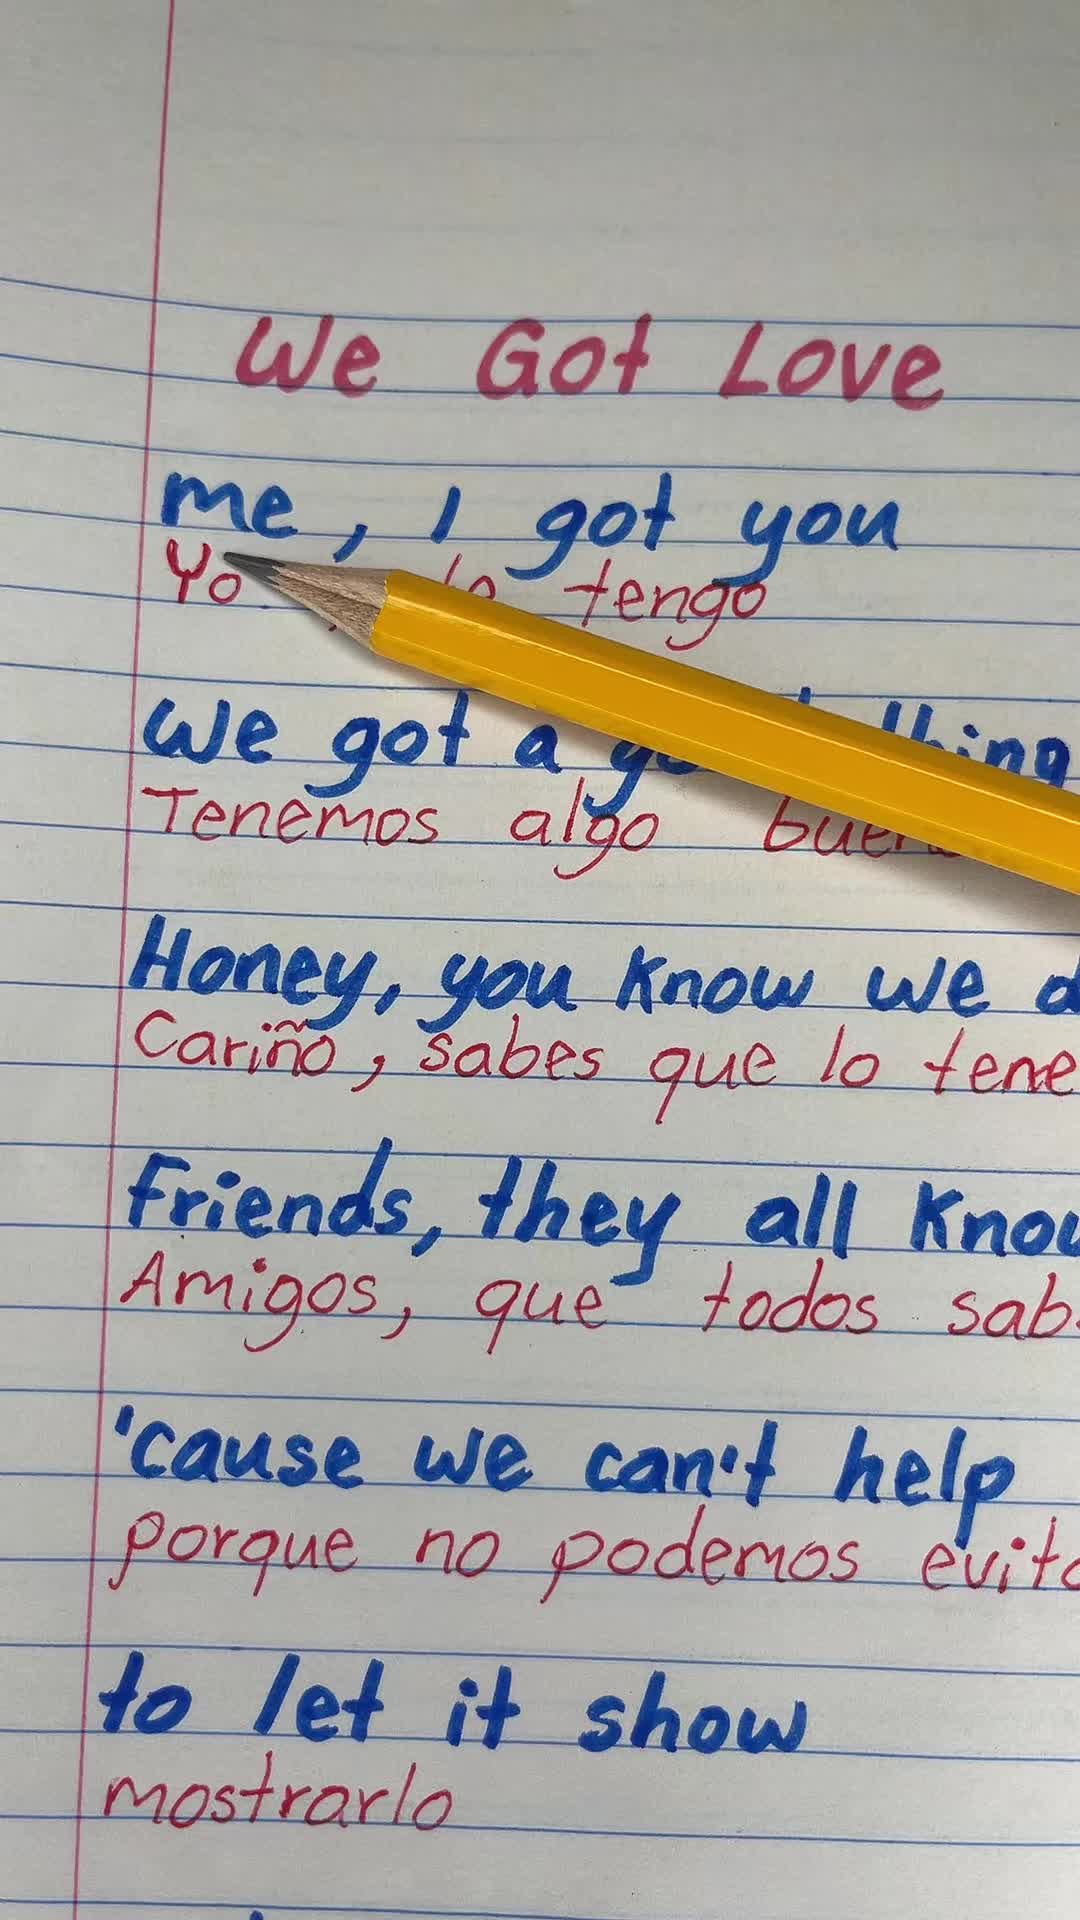 We Got Love
me, I got you
Yo, lo tengo
We got a thing
Tenemos algo
Honey, you know we
Cariño, sabes que lo
Friends, they all
Amigos, que todos
'cause we can't help
porque no podemos
to let it show
mostrarlo